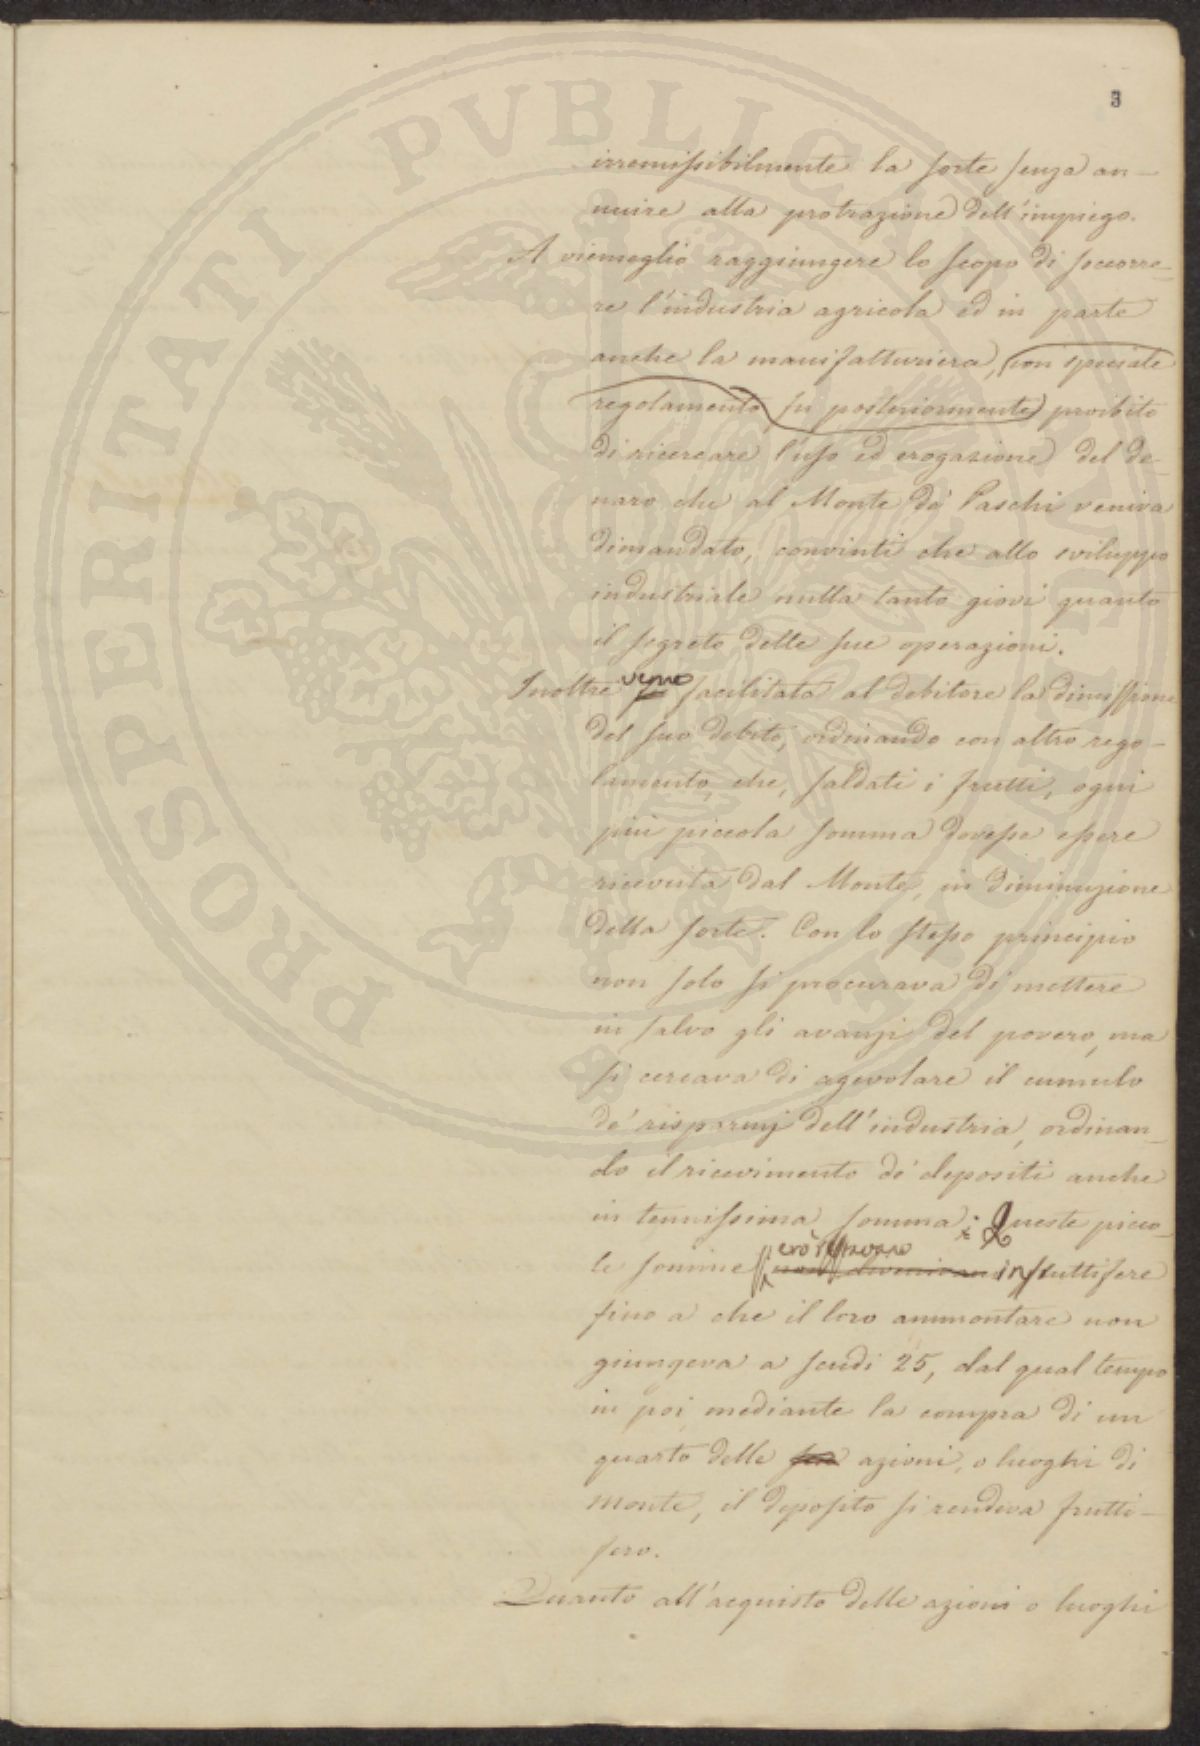 3
irremissibilmente la sorte senza an-
nuire alla protrazione dell'impiego.
A viemeglio raggiungere lo scopo di soccorre-
re l'industria agricola ed in parte
anche la manifatturiera, (con speciale
regolamento fu posteriormente) proibito
di ricercare l'uso ed erogazione del de-
naro che al Monte de' Paschi veniva
dimandato, convinti che allo sviluppo
industriale nulla tanto giovi quanto
il segreto delle sue operazioni.
Inoltre venne facilitata al debitore la dimissione
del suo debito, ordinando con altro rego-
lamento, che, saldati i frutti, ogni
più piccola somma dovesse essere
ricevuta dal Monte, in diminuzione
della sorte. Con lo stesso principio
non solo si procurava di mettere
in salvo gli avanzi del povero, ma
si cercava di agevolare il cumulo
de' risparmj dell'industria, ordinan-
do il ricevimento de' depositi anche
in tenuissima somma. Queste picco-
le somme infruttifere
fino a che il loro ammontare non
giungeva a scudi 25, dal qual tempo
in poi mediante la compra di un
quarto delle azioni, o luoghi di
monte, il deposito si rendeva frutti-
fero.
Quanto all'acquisto delle azioni o luoghi
PROSPERITATI PVBLICAE